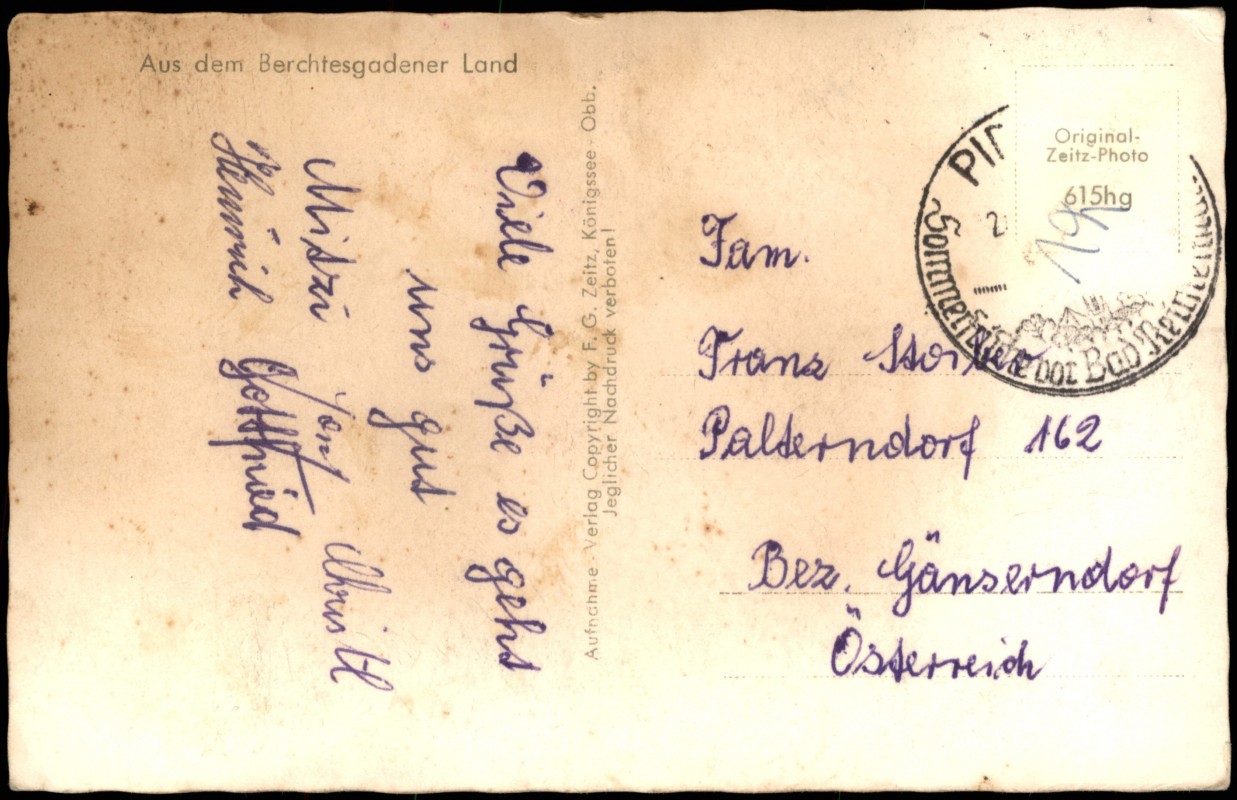 Aus dem Berchtesgadener Land
Viele Grüße es geht
uns gut
Mitzi Christl
Heinrich Gottfried
Aufnahme - Verlag Copyright by F. G. Zeitz, Königssee - Obb.
Jeglicher Nachdruck verboten!
Original-
Zeitz-Photo
615hg
Sommerfrische vor Bad Reichenhall
Fam.
Franz
Palterndorf 162
Bez. Gänserndorf
Österreich